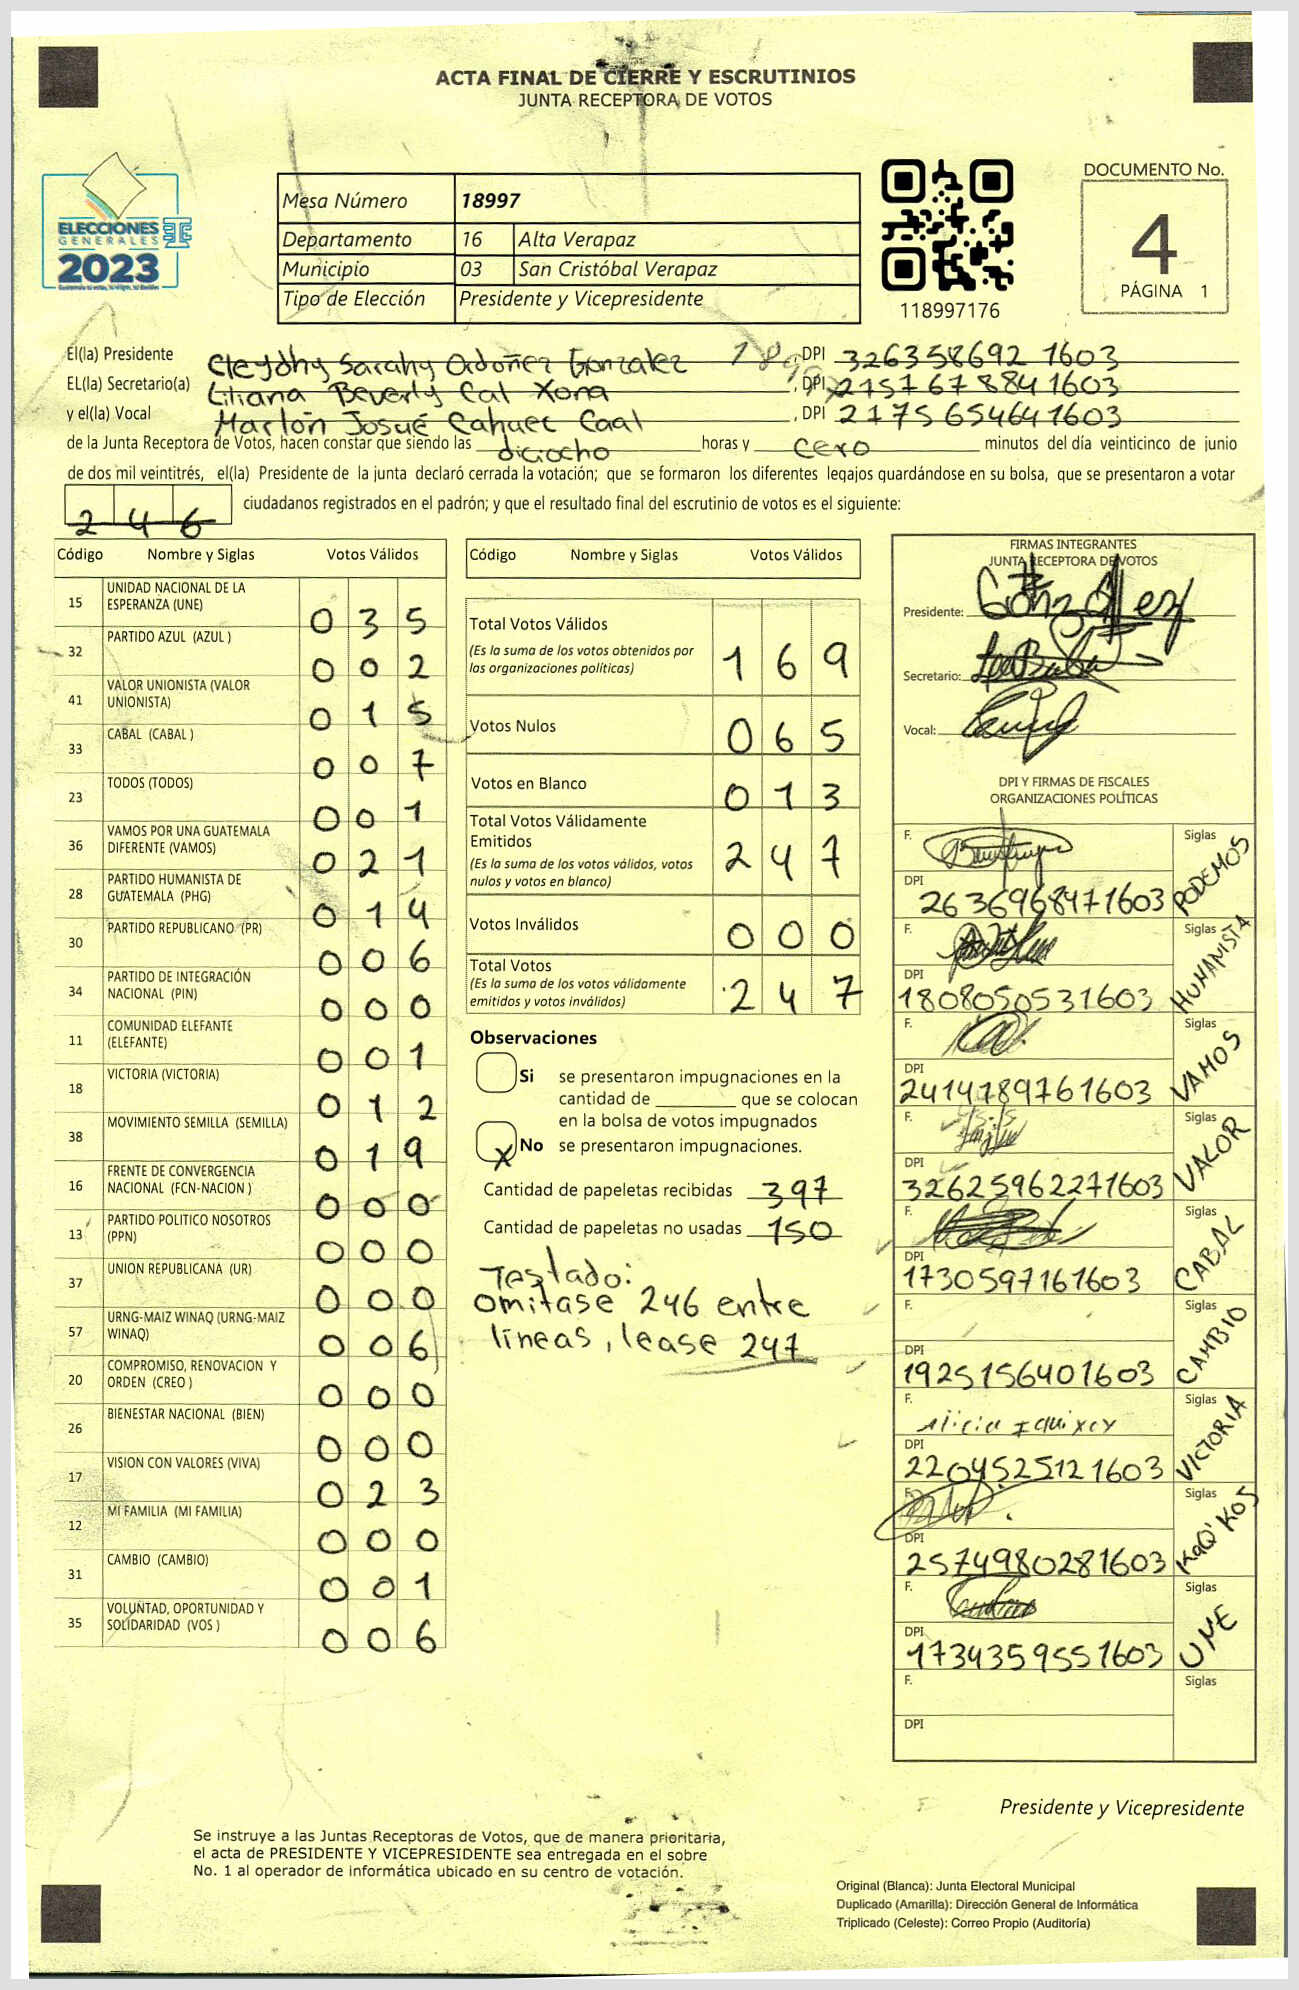 ACTA FINAL DE CIERRE Y ESCRUTINIOS
JUNTA RECEPTORA DE VOTOS
ELECCIONES
GENERALES
2023
Mesa Número 18997
Departamento 16 Alta Verapaz
Municipio 03 San Cristóbal Verapaz
Tipo de Elección Presidente y Vicepresidente
118997176
DOCUMENTO No.
4
PÁGINA 1
El(la) Presidente Cleydhy Sarahy Ordoñez Gonzalez , DPI 326358692 1603
EL(la) Secretario(a) Liliana Beverly Cal Xona , DPI 215767884 1603
y el(la) Vocal Marlon Josué Cahuec Caal , DPI 217565464 1603
de la Junta Receptora de Votos, hacen constar que siendo las diciocho horas y cero minutos del día veinticinco de junio
de dos mil veintitrés, el(la) Presidente de la junta declaró cerrada la votación; que se formaron los diferentes legajos guardándose en su bolsa, que se presentaron a votar
246 ciudadanos registrados en el padrón; y que el resultado final del escrutinio de votos es el siguiente:
Código Nombre y Siglas Votos Válidos
15 UNIDAD NACIONAL DE LA ESPERANZA (UNE) 035
32 PARTIDO AZUL (AZUL ) 002
41 VALOR UNIONISTA (VALOR UNIONISTA) 015
33 CABAL (CABAL ) 007
23 TODOS (TODOS) 001
36 VAMOS POR UNA GUATEMALA DIFERENTE (VAMOS) 021
28 PARTIDO HUMANISTA DE GUATEMALA (PHG) 014
30 PARTIDO REPUBLICANO (PR) 006
34 PARTIDO DE INTEGRACIÓN NACIONAL (PIN) 000
11 COMUNIDAD ELEFANTE (ELEFANTE) 001
18 VICTORIA (VICTORIA) 012
38 MOVIMIENTO SEMILLA (SEMILLA) 019
16 FRENTE DE CONVERGENCIA NACIONAL (FCN-NACION ) 000
13 PARTIDO POLITICO NOSOTROS (PPN) 000
37 UNION REPUBLICANA (UR) 000
57 URNG-MAIZ WINAQ (URNG-MAIZ WINAQ) 006
20 COMPROMISO, RENOVACION Y ORDEN (CREO ) 000
26 BIENESTAR NACIONAL (BIEN) 000
17 VISION CON VALORES (VIVA) 023
12 MI FAMILIA (MI FAMILIA) 000
31 CAMBIO (CAMBIO) 001
35 VOLUNTAD, OPORTUNIDAD Y SOLIDARIDAD (VOS ) 006
Código Nombre y Siglas Votos Válidos
Total Votos Válidos 169
(Es la suma de los votos obtenidos por
las organizaciones políticas)
Votos Nulos 065
Votos en Blanco 013
Total Votos Válidamente
Emitidos 247
(Es la suma de los votos válidos, votos
nulos y votos en blanco)
Votos Inválidos 000
Total Votos 247
(Es la suma de los votos válidamente
emitidos y votos inválidos)
Observaciones
Si se presentaron impugnaciones en la
cantidad de ________ que se colocan
en la bolsa de votos impugnados
X No se presentaron impugnaciones.
Cantidad de papeletas recibidas 397
Cantidad de papeletas no usadas 150
Testado:
omitase 246 entre
lineas, lease 247
FIRMAS INTEGRANTES
JUNTA RECEPTORA DE VOTOS
Presidente:
Secretario:
Vocal:
DPI Y FIRMAS DE FISCALES
ORGANIZACIONES POLÍTICAS
F. Siglas PODEMOS
DPI 2636968471603
F. Siglas HUMANISTA
DPI 1808050531603
F. Siglas VAMOS
DPI 2414789761603
F. Siglas VALOR
DPI 32625962271603
F. Siglas CABAL
DPI 1730597161603
F. Siglas CAMBIO
DPI 1925156401603
F. Siglas VICTORIA
DPI 2204525121603
F. Siglas KaQ'KoJ
DPI 2574980281603
F. Siglas UNE
DPI 1734359551603
F. Siglas
DPI
Presidente y Vicepresidente
Se instruye a las Juntas Receptoras de Votos, que de manera prioritaria,
el acta de PRESIDENTE Y VICEPRESIDENTE sea entregada en el sobre
No. 1 al operador de informática ubicado en su centro de votación.
Original (Blanca): Junta Electoral Municipal
Duplicado (Amarilla): Dirección General de Informática
Triplicado (Celeste): Correo Propio (Auditoría)